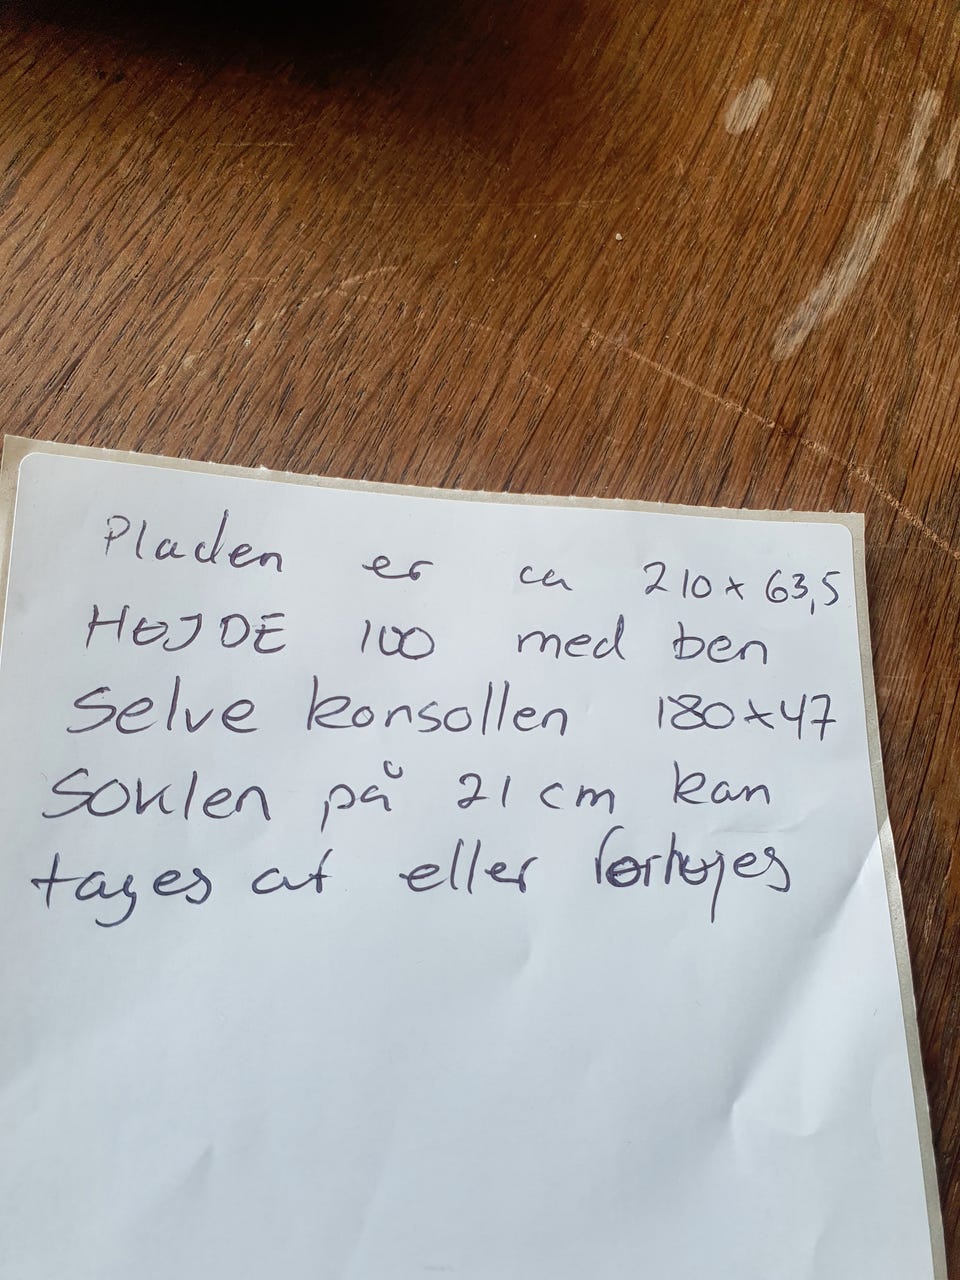 Pladen er ca 210 x 63,5
HØJDE 100 med ben
Selve konsollen 180 x 47
Soklen på 21 cm kan
tages af eller forhøjes